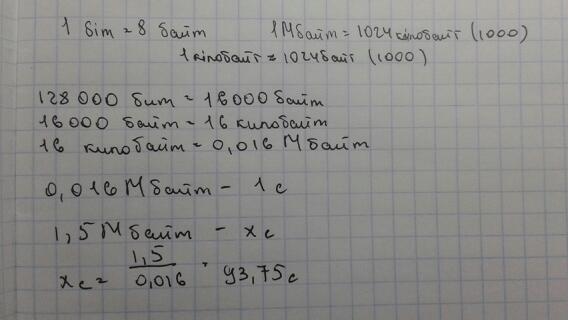 1 біт = 8 байт 1 Мбайт = 1024 кілобайт (1000)
1 кілобайт = 1024 байт (1000)
128 000 бит = 16 000 байт
16 000 байт = 16 килобайт
16 килобайт = 0,016 Мбайт
0,016 Мбайт - 1 с
1,5 Мбайт - x с
x c = 1,5 / 0,016 = 93,75 с